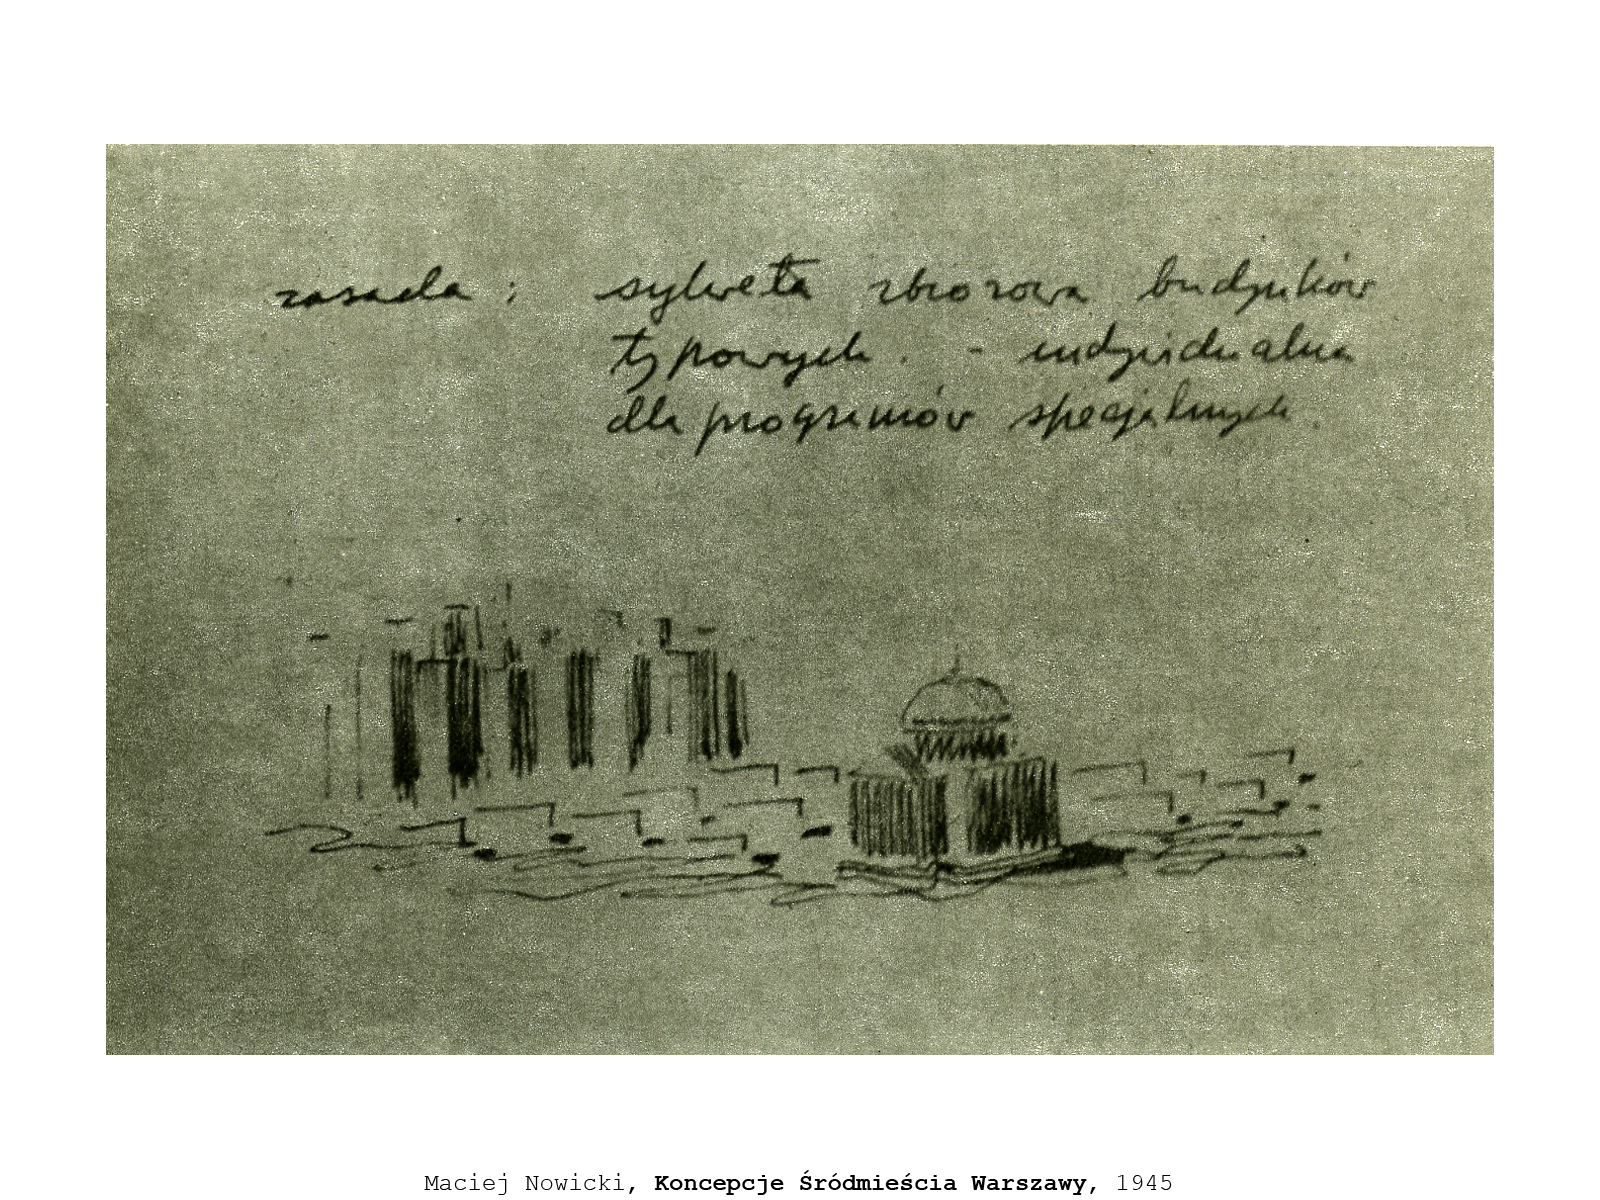 zasada : sylweta zbiorowa budynków
typowych. - indywidualna
dla programów specjalnych.
Maciej Nowicki, Koncepcje Śródmieścia Warszawy, 1945